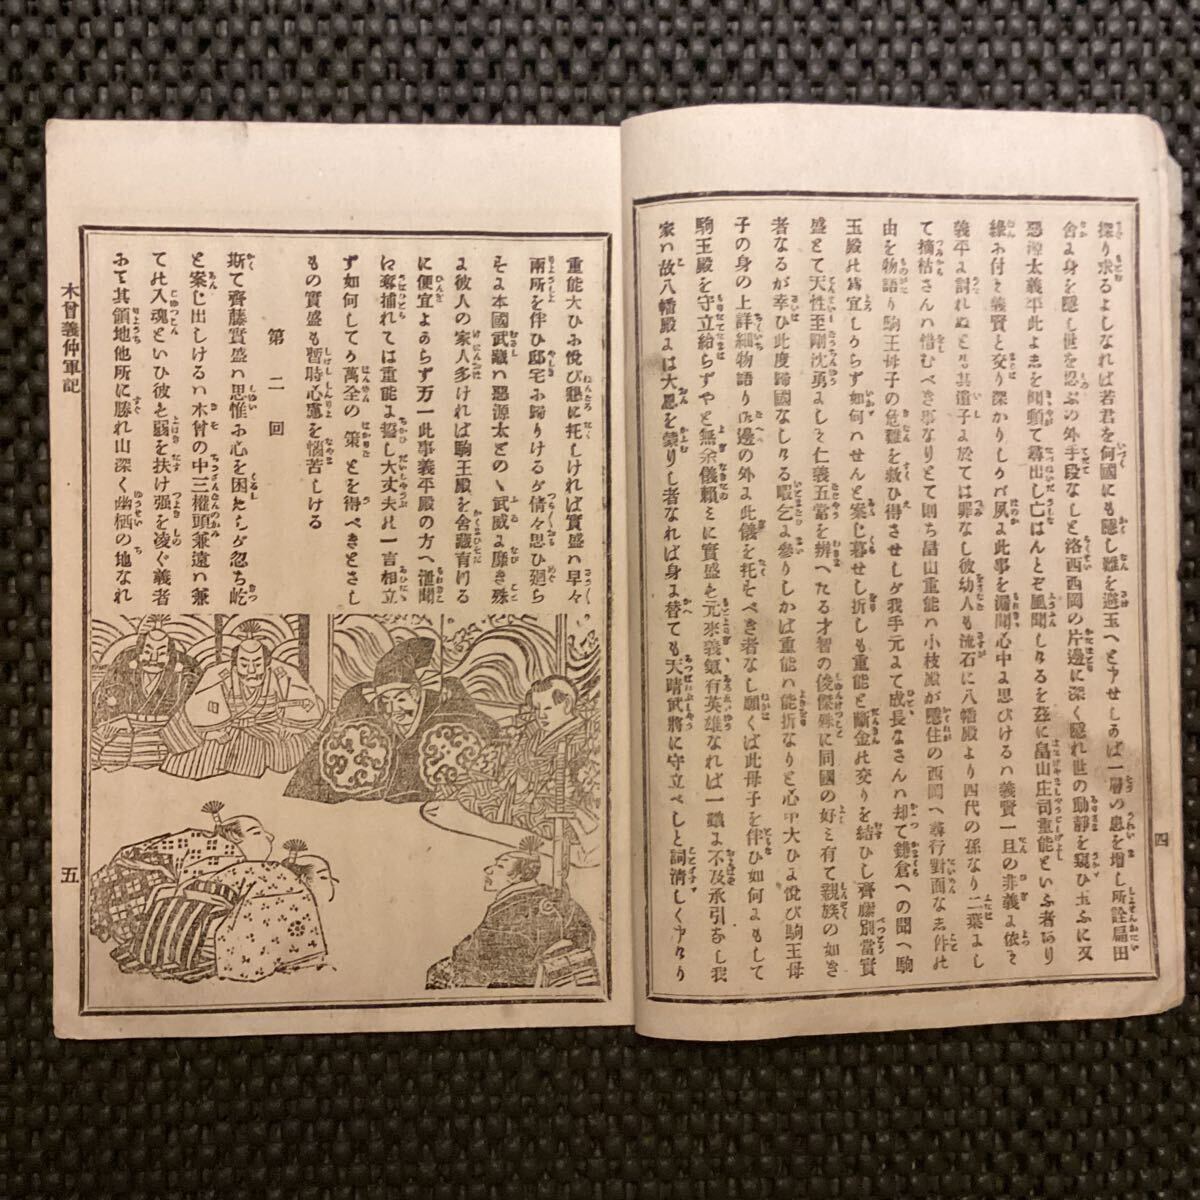 探り求るよしなれば若君を何國にも隱し難を避玉へとアせしあば一層の患を増し所詮扁田
舍ﾖ身を隱し世を忍ぶの外手段なしと洛西西岡の片邊に深く隱れ世の動靜を窺ひ玉ふに又
惡源太義平此よしを聞頻て尋出し亡はんとぞ風聞しけるを茲に畠山庄司重能といふ者あり
緣み付と義賢と交り深かりしが夙よ此事を洩聞心中よ思びけるハ義賢一旦の非義よ依て
義平よ討れぬとも其遺子よ於ては罪なし彼幼人も流石に八幡殿より四代の孫なり二葉よし
て摘枯さんハ惜むべき事なりとて則ち畠山重能ハ小枝殿が隱住の西岡へ尋行對面なし件の
由を物語り駒王母子の危難を救ひ得させしが我手元よて成長なさんハ却て鎌倉への聞へ駒
玉殿の爲宜しからず如何ハせんと案じ暮せし折しも重能と斷金の交りを結ひし齊藤別當實
盛とて天性至剛沈勇よして仁義五常を辨へたる才智の俊傑殊に同國の好ミ有て親族の如き
者なるが幸ひ此度歸國なしける暇乞よ參りしかば重能ハ能折なりと心中大ひよ悅び駒王母
子の身の上詳細物語り此邊の外よ此儀を托すべき者なし願くば此母子を伴ひ如何よもして
駒王殿を守立給らずやと無余儀賴ミに實盛も元來義氣有英雄なれば一議よ不及承引なし我
家ハ故八幡殿よは大恩を蒙りし者なれば身よ替ても天晴武將に守立べしと詞淸しくアけり
四
重能大ひよ悅び懇に托しければ實盛ハ早々
兩所を伴ひ邸宅よ歸りけるが倩々思ひ廻ら
すよ本國武藏ハ惡源太どのゝ武威よ靡き殊
よ彼人の家人多ければ駒王殿を舍藏育ける
に便宜よあらず万一此事義平殿の方へ洩聞
に奪捕れては重能よ誓し大丈夫の一言相立
ず如何してか萬全の策とを得べきとさし
もの實盛も暫時心慮を惱苦しける
第二回
斯て齊藤實盛ハ思惟よ心を困たしが忽ち屹
と案じ出しけるハ木曾の中三權頭兼遠ハ兼
ての入魂といひ彼も弱を扶け强を凌ぐ義者
よて其領地他所に勝れ山深く幽栖の地なれ
木曾義仲軍記
五